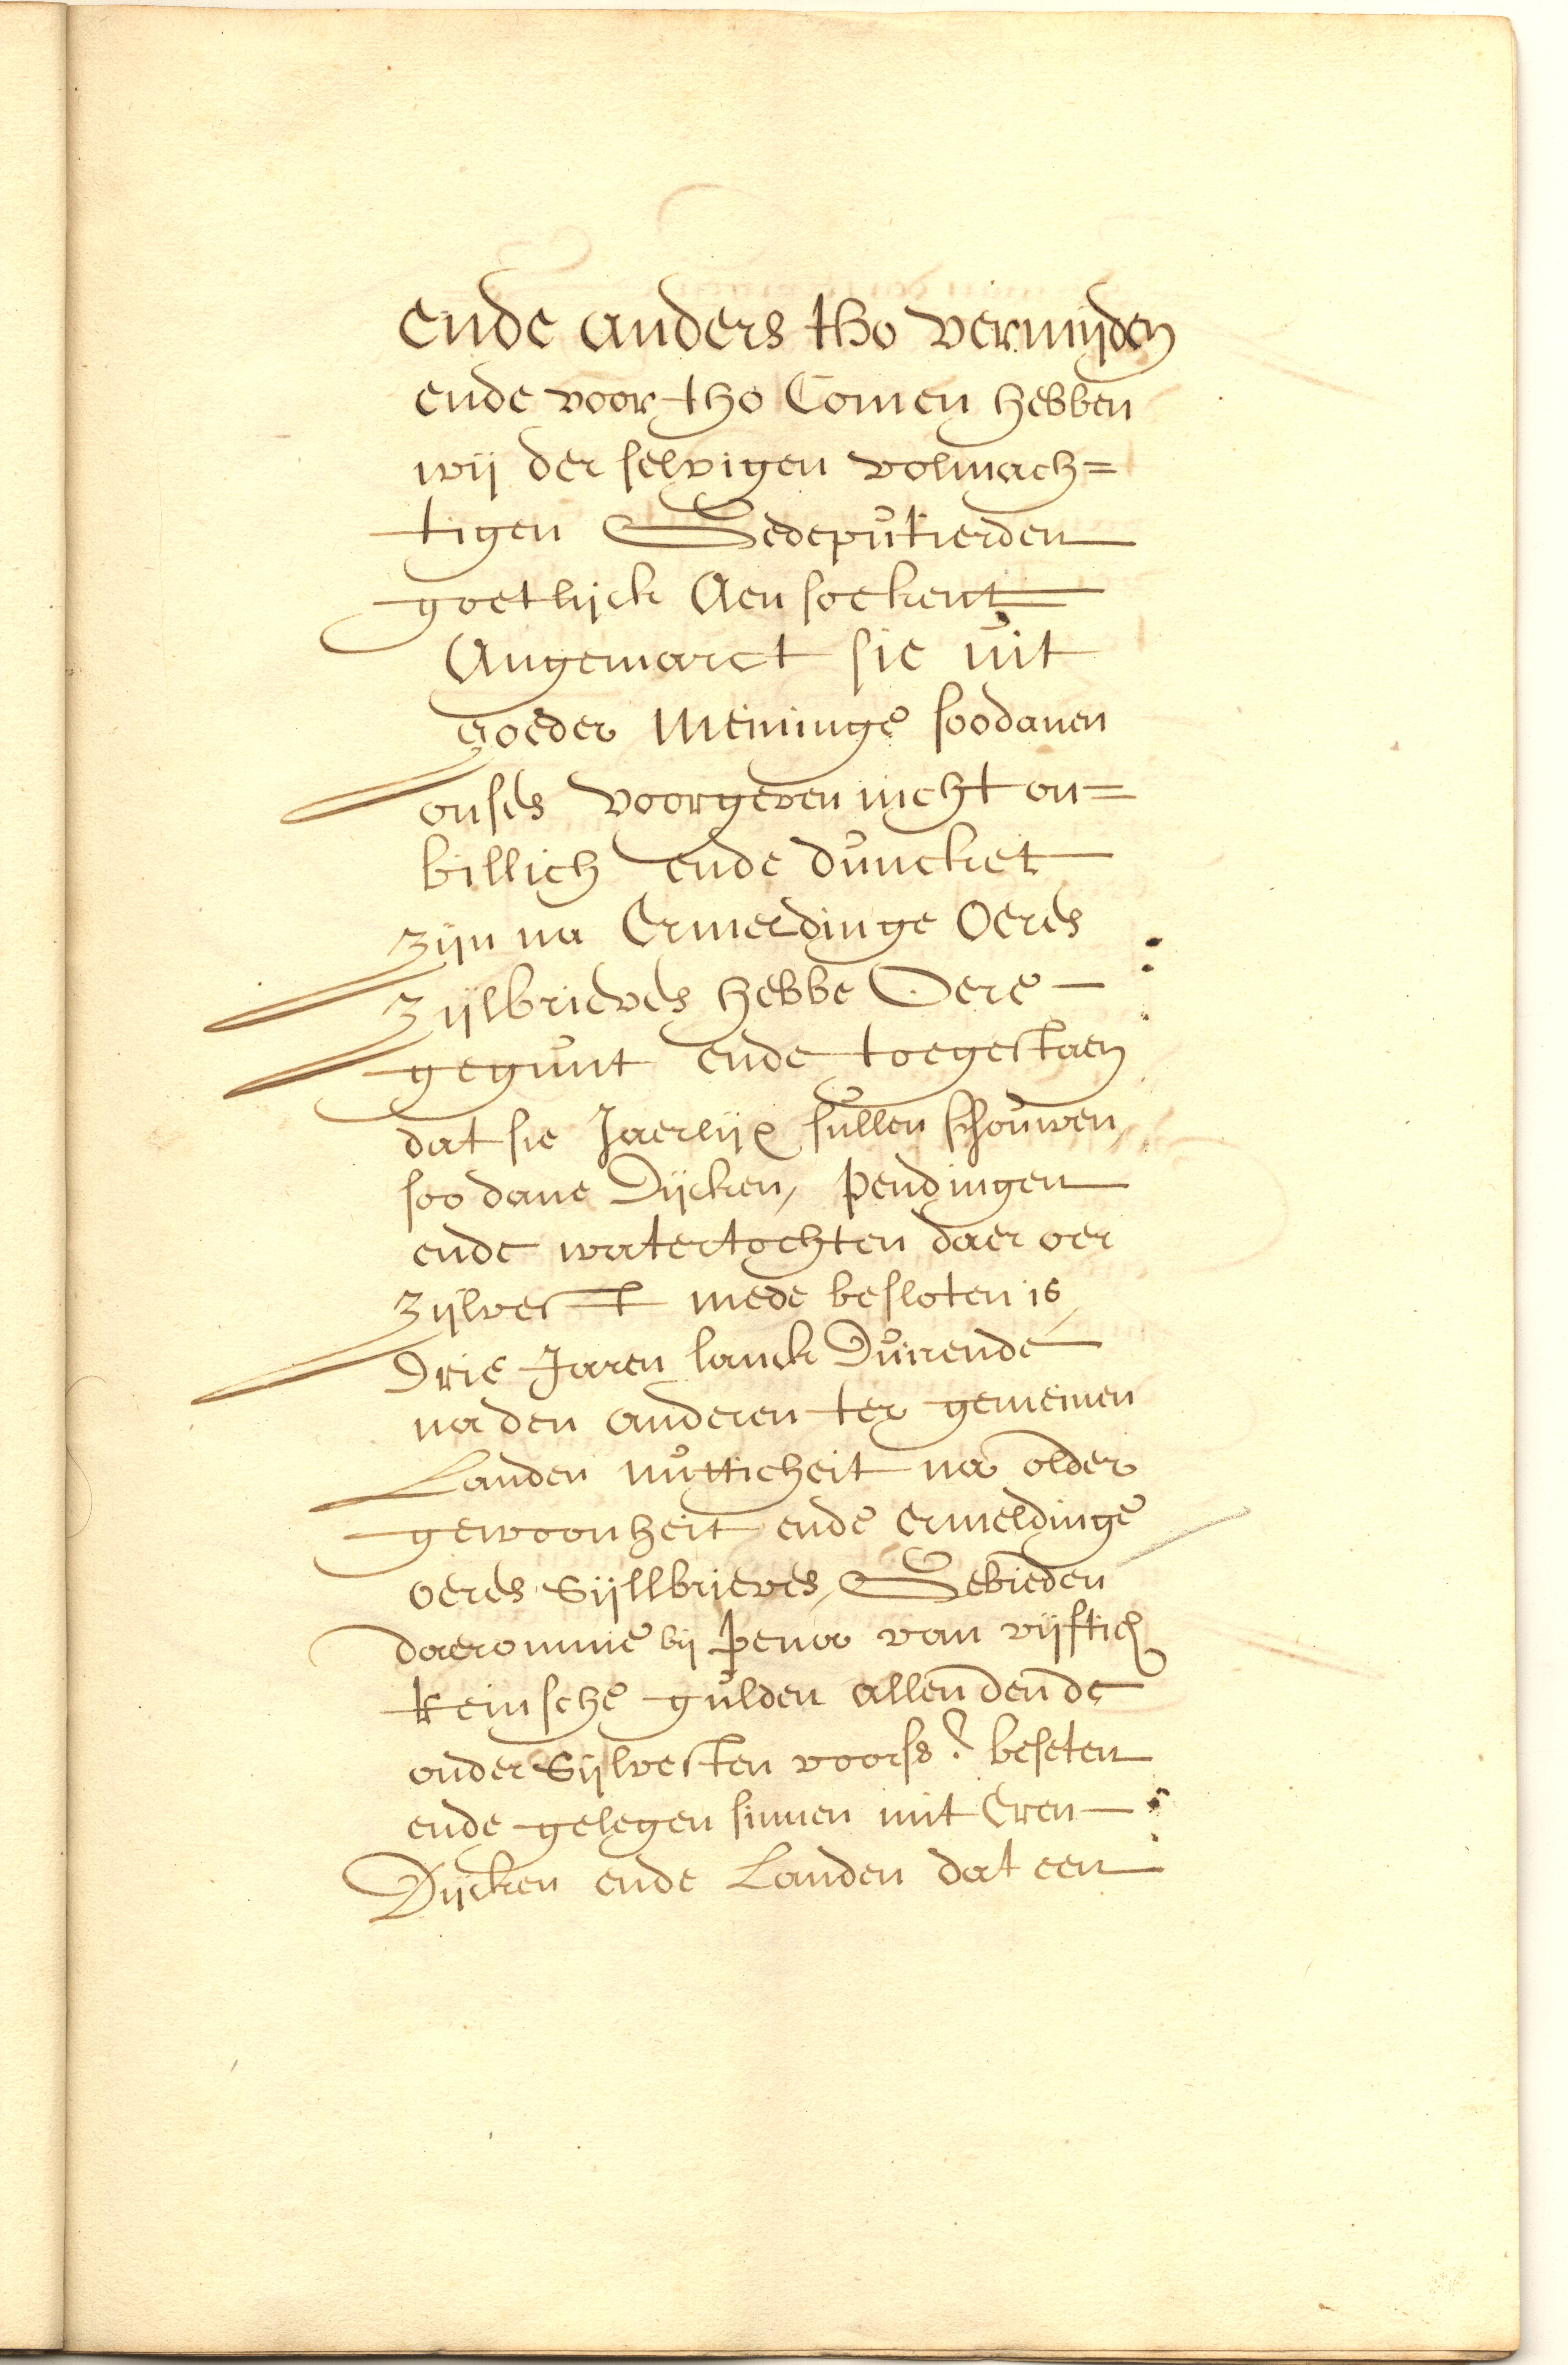 ende anders tho vermijden
ende voor tho Comen hebben
wij der selvigen volmach=
tigen Gedeputierden
goetlijck Aensoekent
Angemarct sie uit
goeder Meininge soodanen
onses voorgeven nicht on=
billich ende duncket
zijn na Ermeldinge Oeres
zijlbrieves hebbe Oere
gegunt ende toegestaen
dat sie Jaerlijx sullen schouwen,
soodane Dijcken, pendingen
ende watertochten daer oer
zijlvest mede besloten is,
Drie Jaren lanck Duirende
na den anderen ter gemeinen
Landen nutticheit na older
gewoonheit ende Ermeldinge
oeres Sijllbrieves, Gebieden
daeromme bij pena van vijftich
keinsche gulden allen den de
onder Sijlvesten voors. beseten
ende gelegen sinnen mit Eren
Dijcken ende Landen dat een